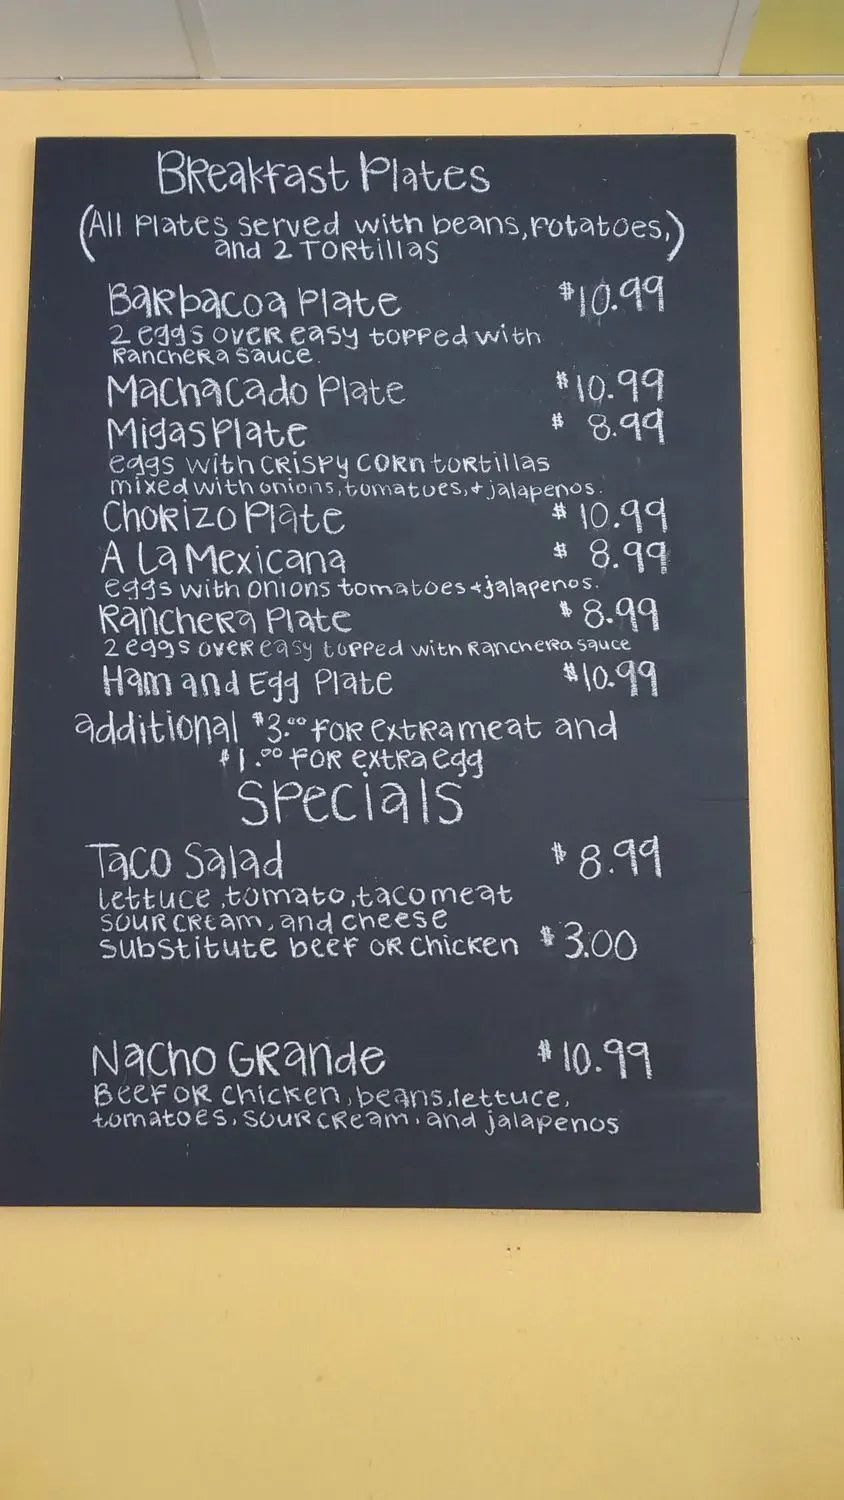 Breakfast Plates
(All Plates served with beans, Potatoes,)
and 2 Tortillas
Barbacoa Plate $10.99
2 eggs over easy topped with
Ranchera sauce.
Machacado Plate $10.99
Migas Plate $ 8.99
eggs with crispy corn tortillas
mixed with onions, tomatoes, + jalapenos.
Chorizo Plate $10.99
A La Mexicana $ 8.99
eggs with onions tomatoes + jalapenos.
Ranchera Plate $8.99
2 eggs over easy topped with Ranchera sauce
Ham and Egg Plate $10.99
additional $3.00 for extra meat and
$1.00 for extra egg
Specials
Taco Salad $8.99
lettuce, tomato, taco meat
sour cream, and cheese
substitute beef or chicken $3.00
Nacho Grande $10.99
Beef or chicken, beans, lettuce,
tomatoes, sour cream, and jalapenos